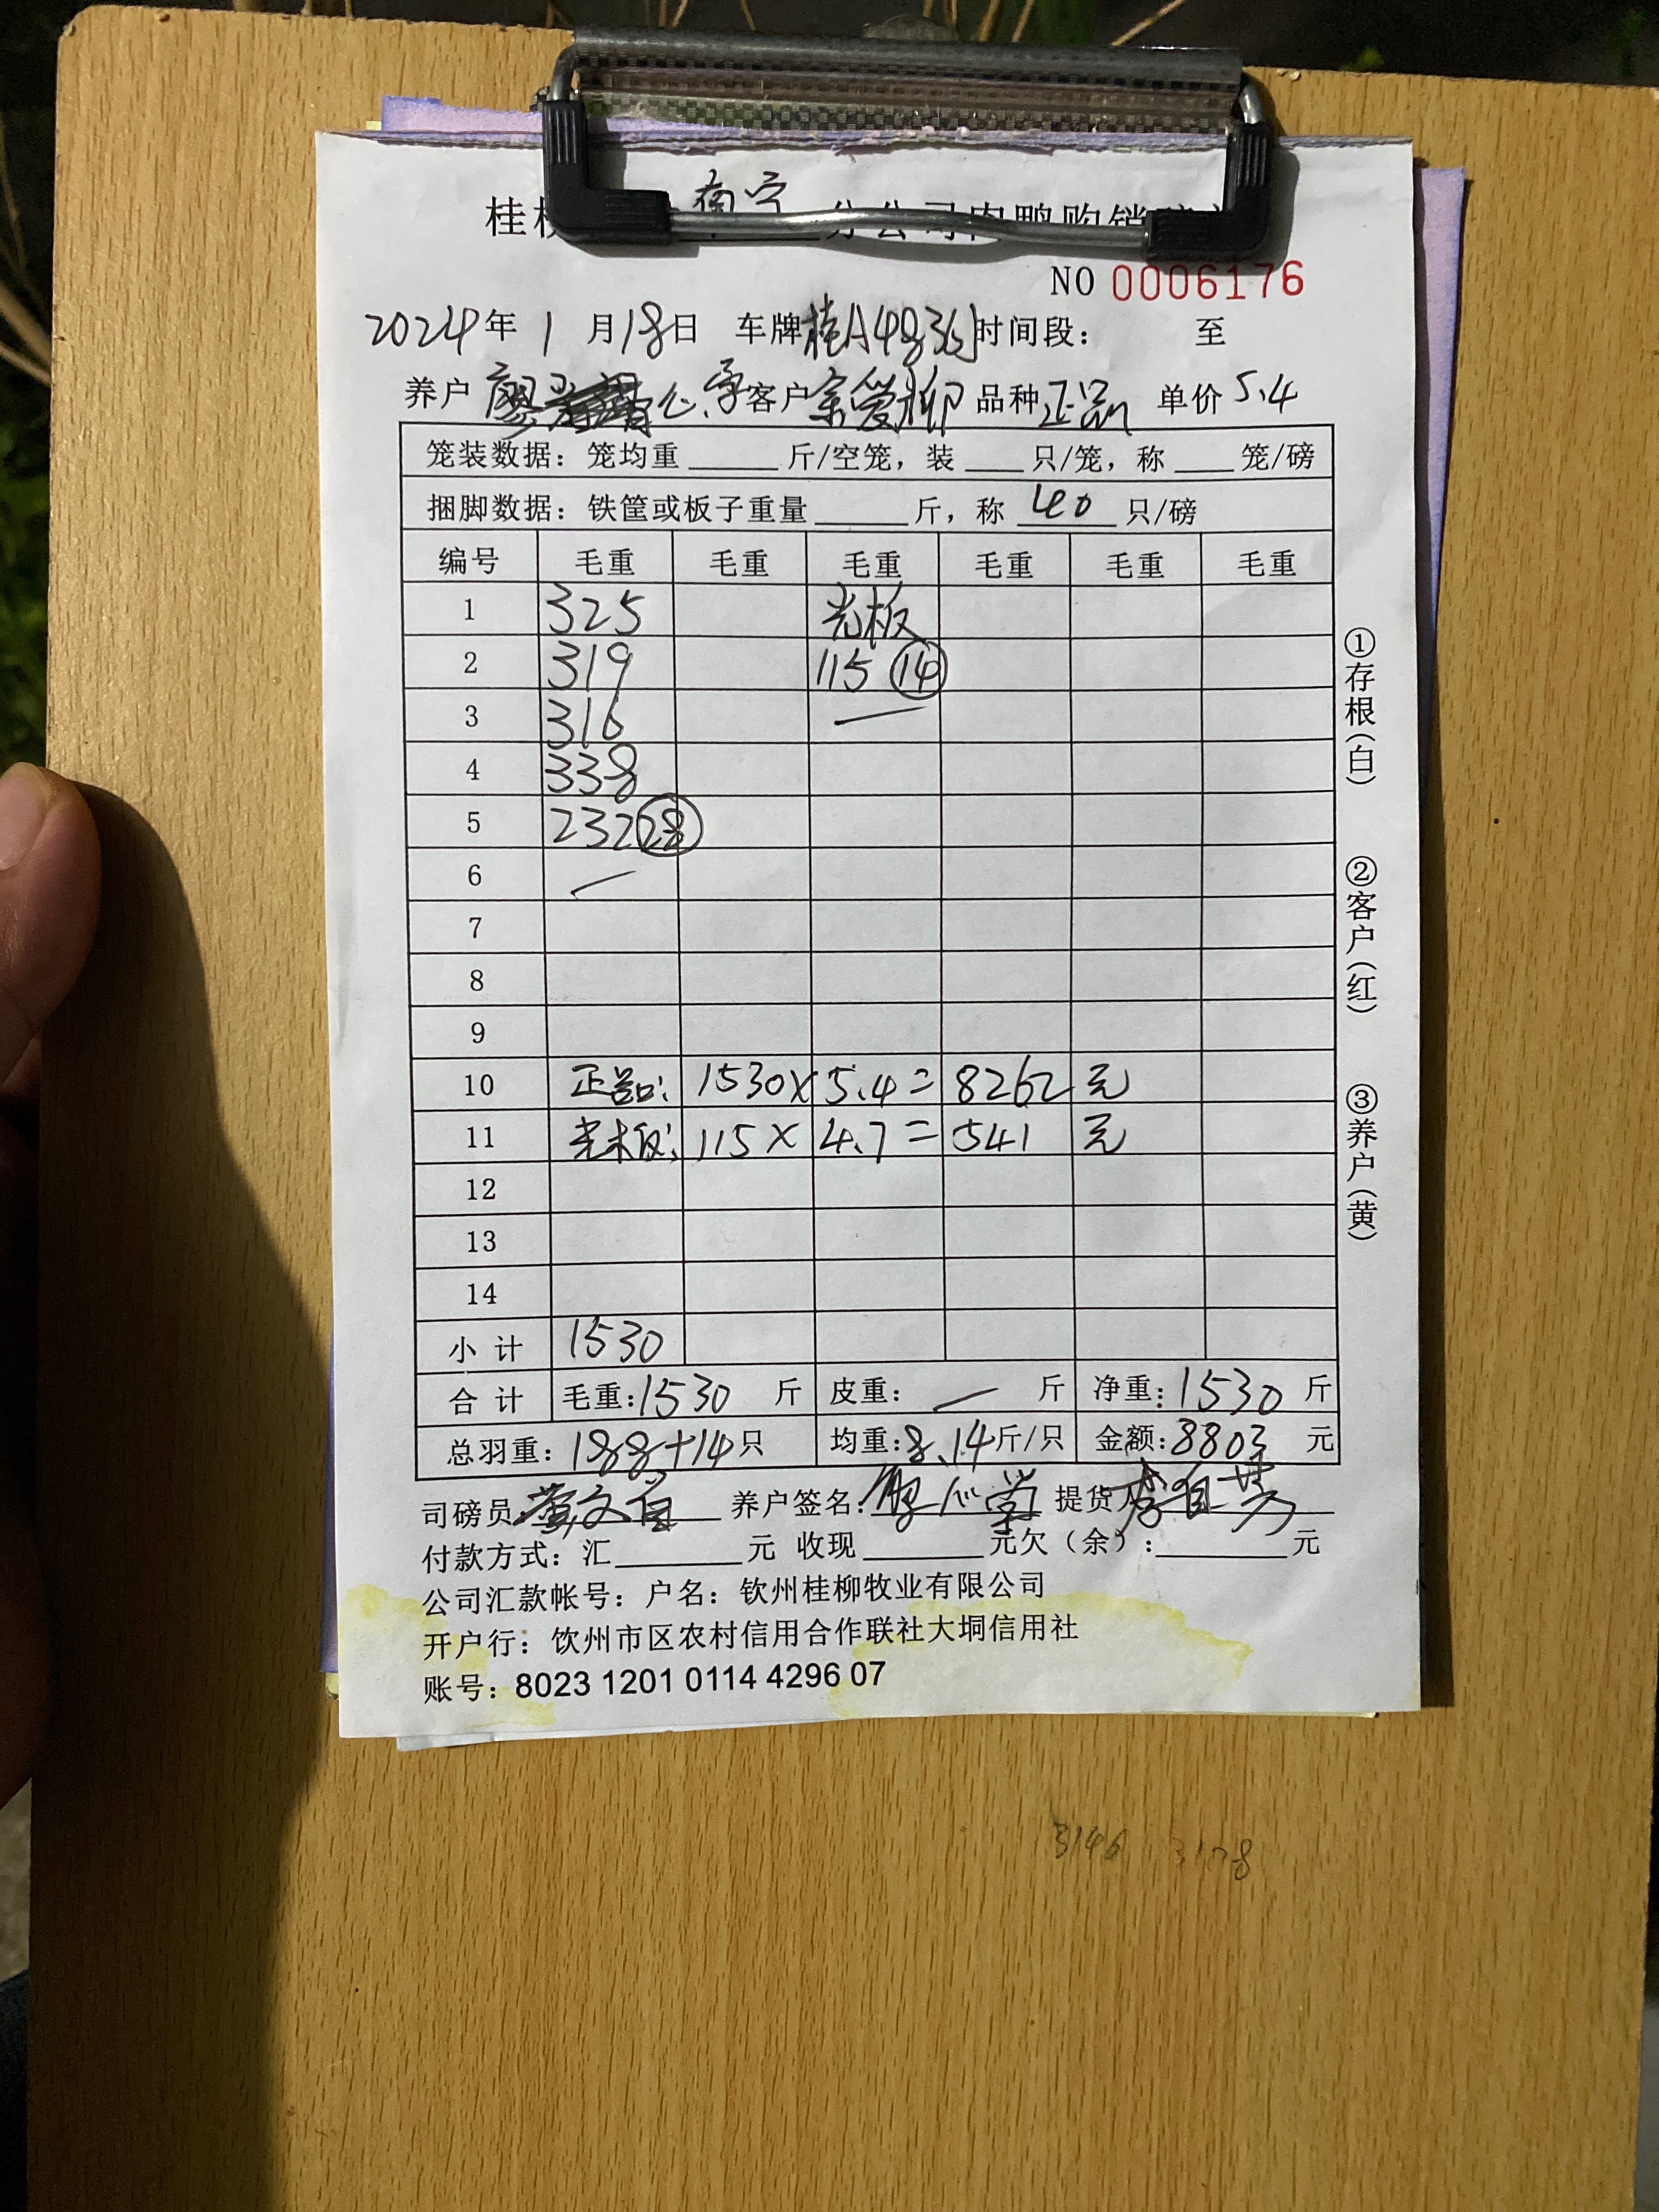 南宁 分公司肉鸭购销
NO 0006176
2024年 1 月18日 车牌桂A 时间段： 至
养户 廖 客户 宗爱柳 品种正品 单价5.4
笼装数据：笼均重 斤/空笼，装 只/笼，称 笼/磅
捆脚数据：铁筐或板子重量 斤，称 40 只/磅
编号 毛重 毛重 毛重 毛重 毛重 毛重
1 325 光板
2 319 115 14
3 316 —
4 338
5 232 28
6 —
7
8
9
10 正品： 1530× 5.4= 8262 元
11 光板： 115× 4.7= 541 元
12
13
14
小计 1530
合计 毛重：1530 斤 皮重： — 斤 净重：1530 斤
总羽重：188+14只 均重：8.14斤/只 金额：8803 元
司磅员： 养户签名： 提货人
付款方式：汇 元 收现 元欠（余）： 元
公司汇款帐号：户名：钦州桂柳牧业有限公司
开户行：钦州市区农村信用合作联社大垌信用社
账号：8023 1201 0114 4296 07
①存根（白）
②客户（红）
③养户（黄）
3146